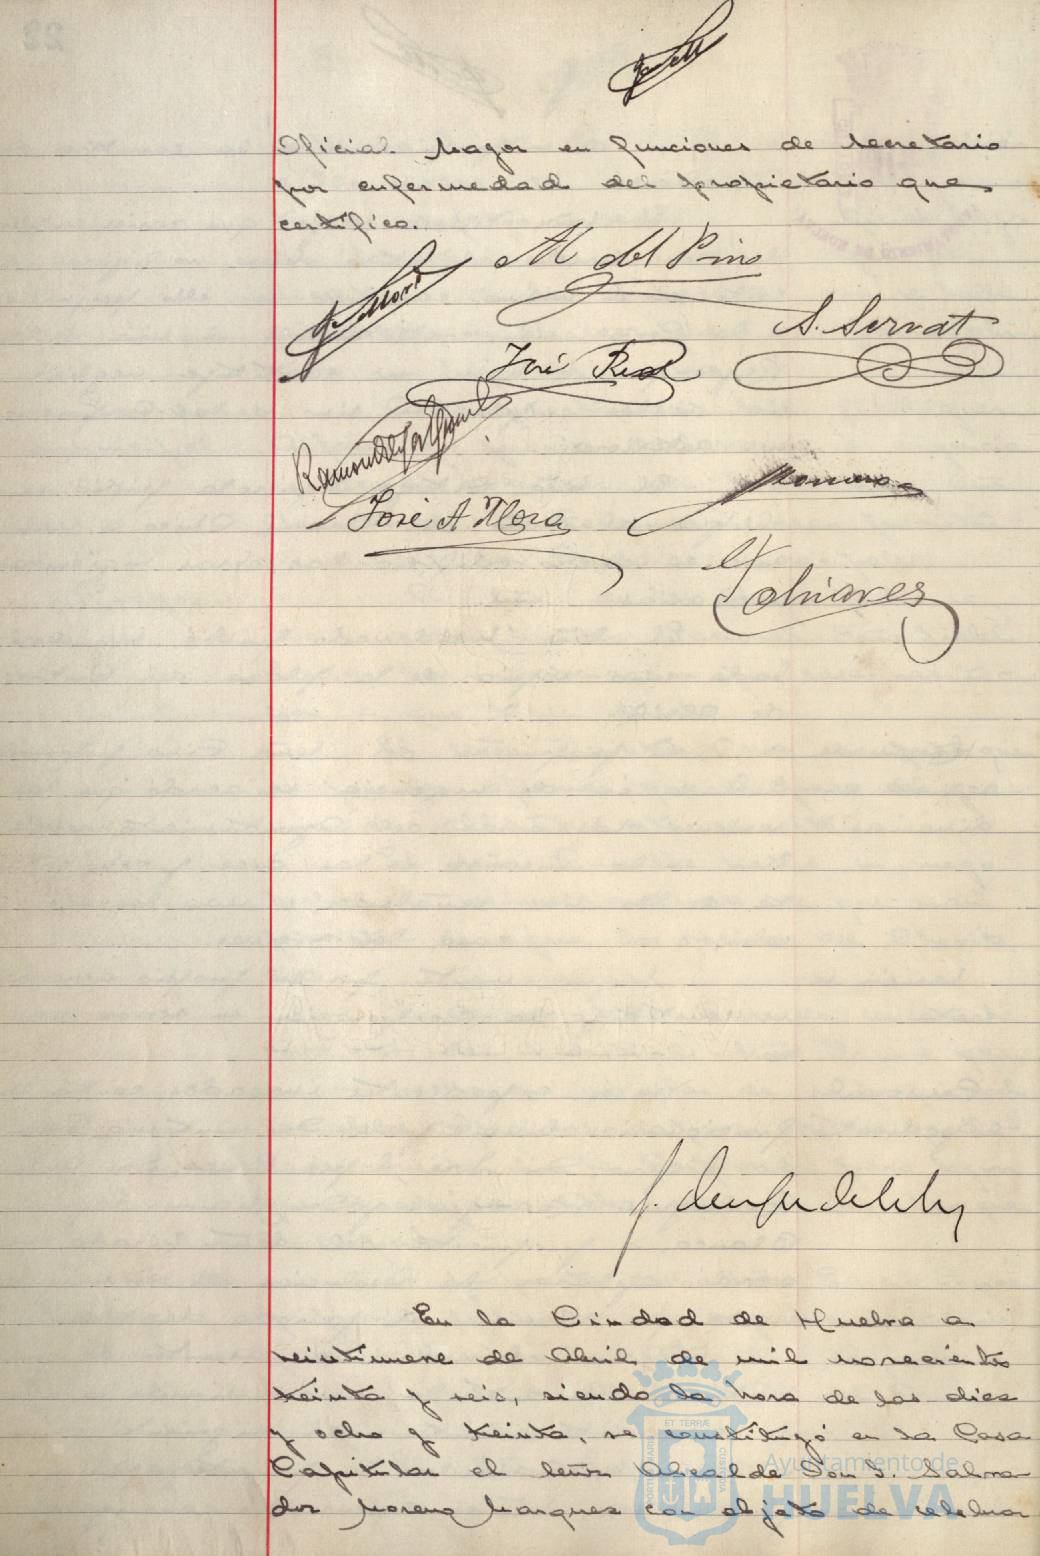 Oficial Mayor en funciones de Secretario
por enfermedad del propietario que
certifico.
M del Pino
S. Serrat
José Real
José A Mora
Olivares
En la Ciudad de Huelva a
veintinueve de Abril de mil novecientos
treinta y seis, siendo la hora de las diez
y ocho y treinta, se constituyó en la Casa
Capitular el Señor Alcalde Don S. Salva
dor Moreno Marquez con objeto de celebrar
Ayuntamiento de
HUELVA